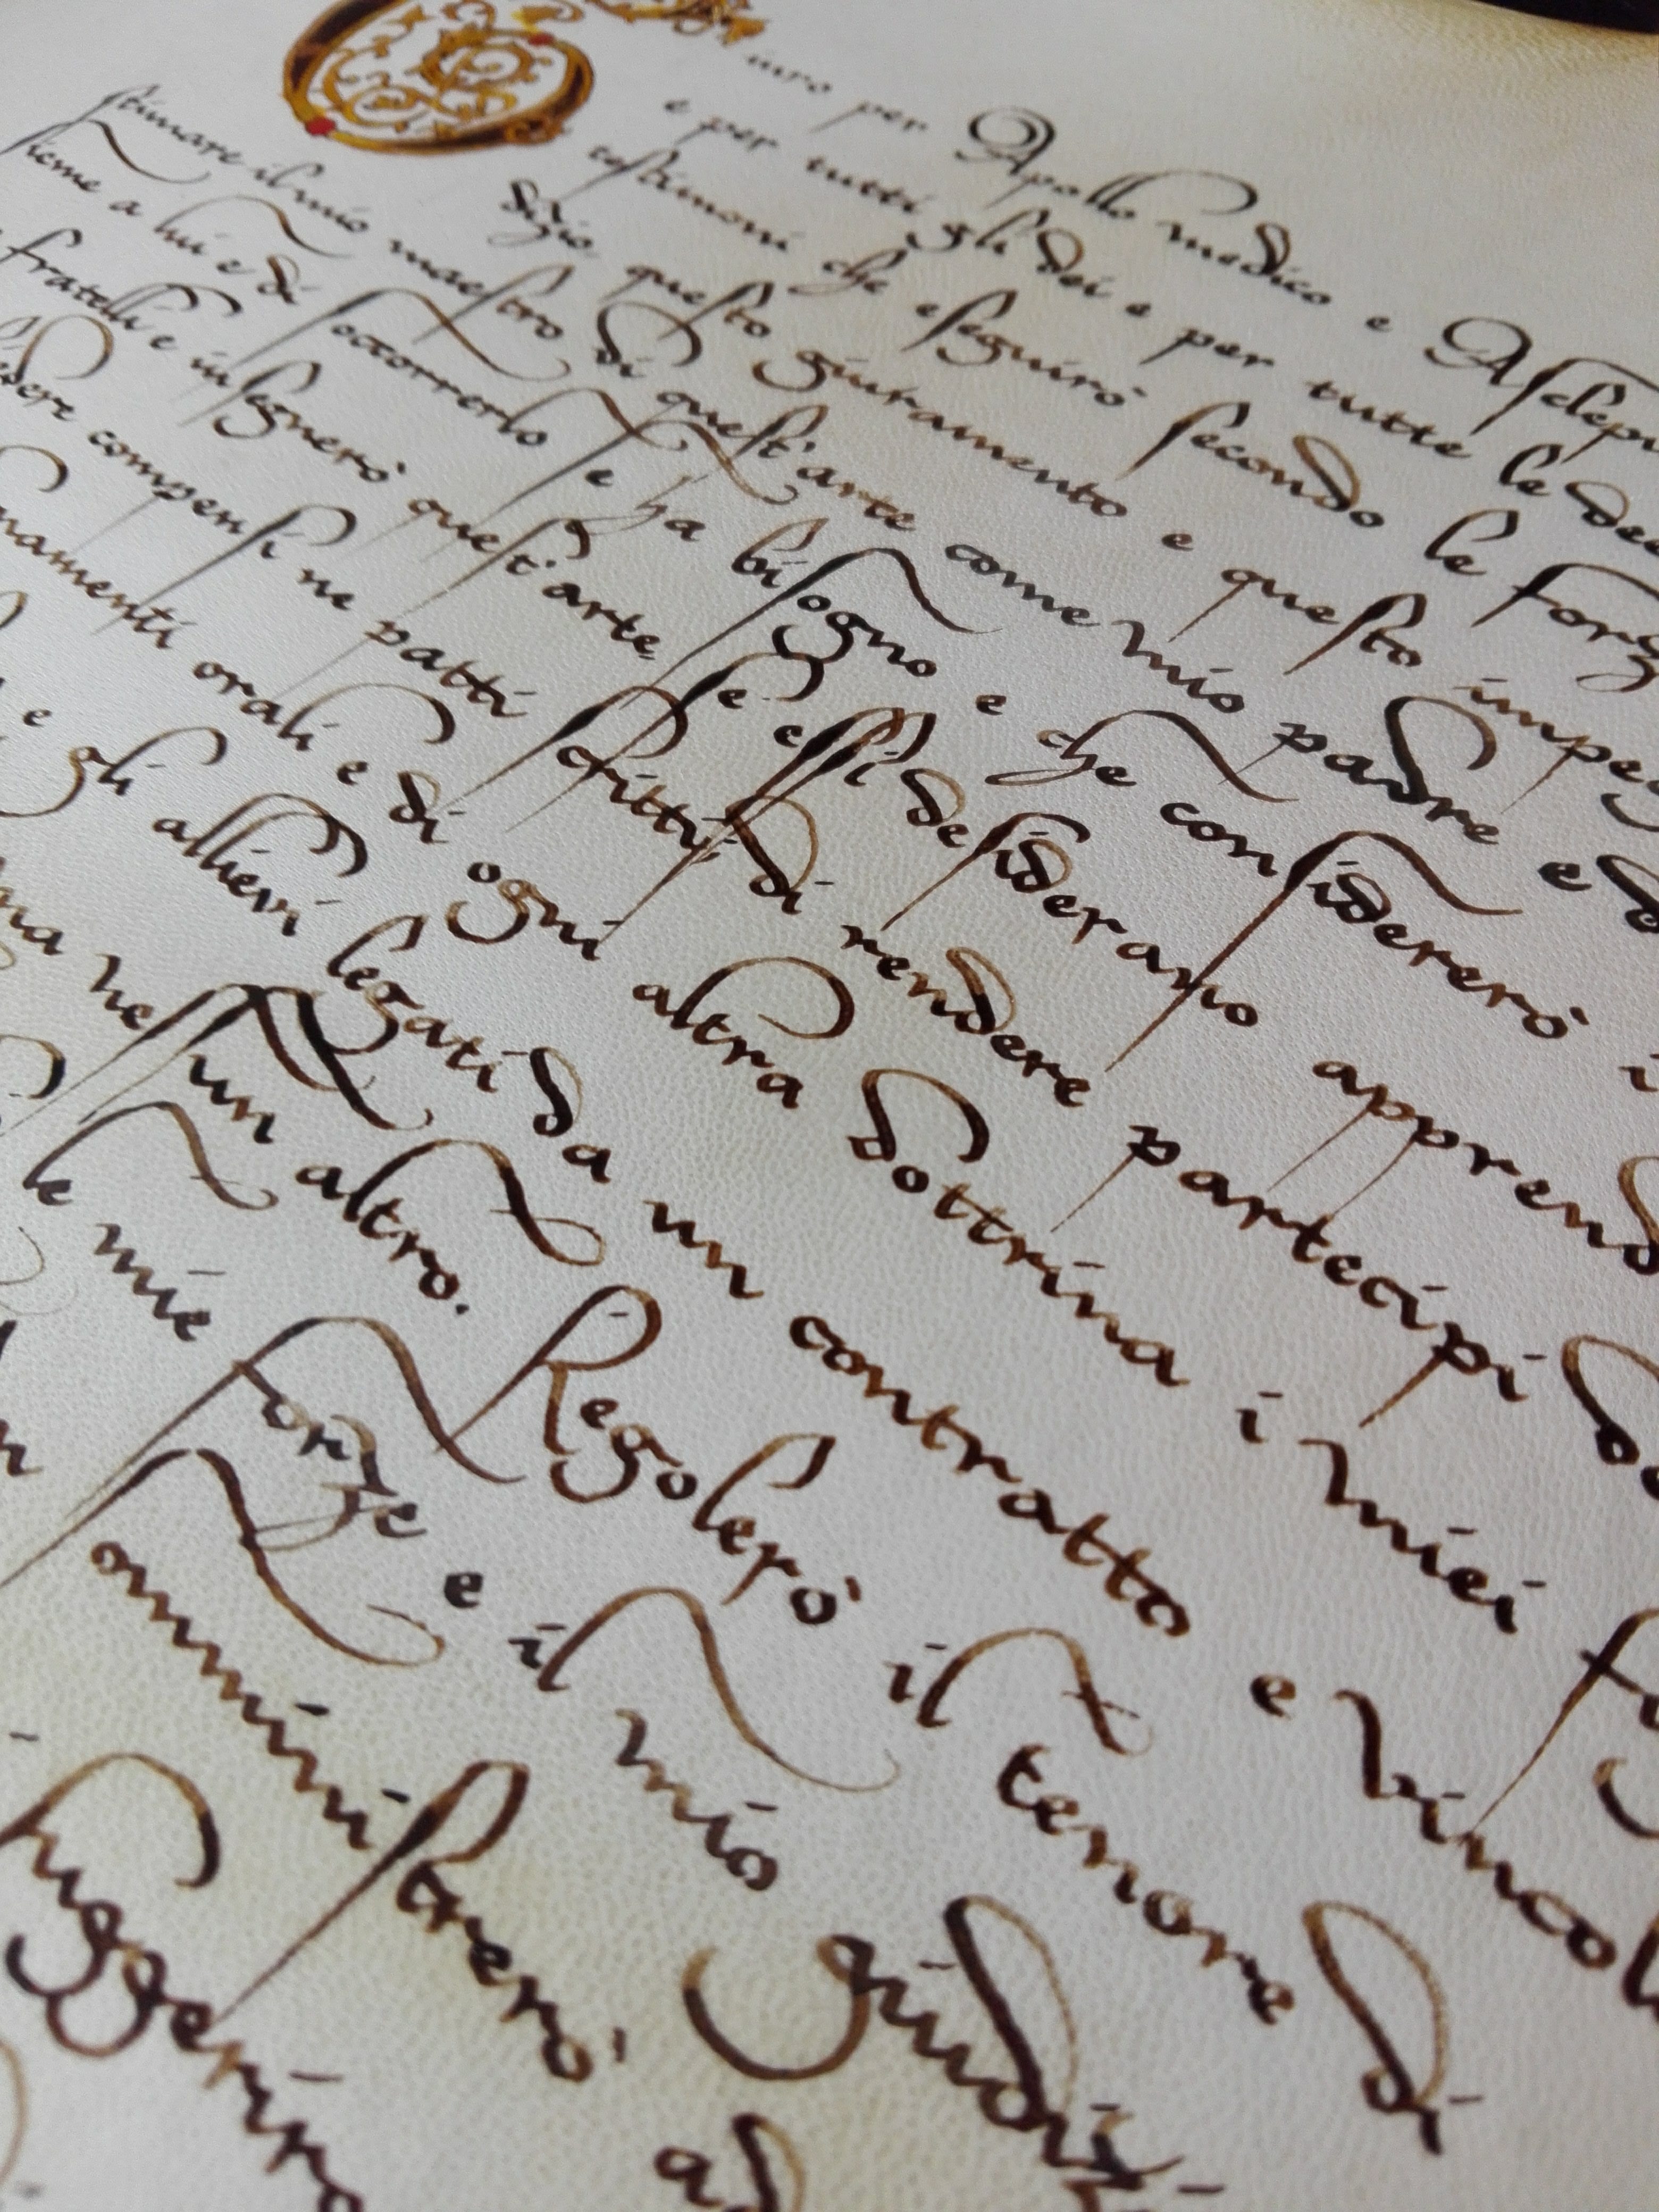 Giuro per Apollo medico e Asclepi
e per tutti gli dei e per tutte le dee
testimoni che eseguirò secondo le forz
dizio questo giuramento e questo impeg
stimare il mio maestro di quest'arte come mio padre e d
sieme a lui e di soccorrerlo se ha bisogno e che considererò i
fratelli e insegnerò quest'arte, se essi desiderano apprend
edere compensi né patti scritti; di rendere partecipi de
namenti orali e di ogni altra dottrina i miei f
e gli allievi legati da un contratto e vincol
ma nessun altro. Regolerò il tenore di
le mie forze e il mio giudiz
omministrerò ad
suggerirò